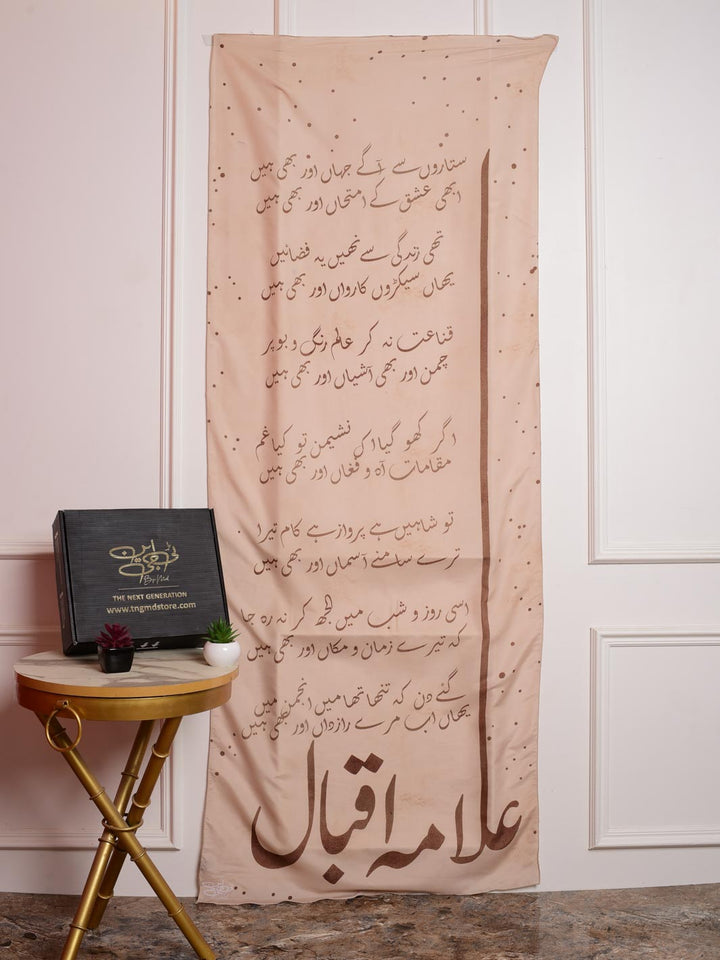 ستاروں سے آگے جہاں اور بھی ہیں
ابھی عشق کے امتحاں اور بھی ہیں
تھی زندگی سے نہیں یہ فضائیں
یہاں سیکڑوں کارواں اور بھی ہیں
قناعت نہ کر عالم رنگ و بو پر
چمن اور بھی آشیاں اور بھی ہیں
اگر کھو گیا اک نشیمن تو کیا غم
مقامات آہ و فغاں اور بھی ہیں
تو شاہیں ہے پرواز ہے کام تیرا
ترے سامنے آسماں اور بھی ہیں
اسی روز و شب میں الجھ کر نہ رہ جا
کہ تیرے زمان و مکاں اور بھی ہیں
گئے دن کہ تنہا تھا میں انجمن میں
یہاں اب مرے رازداں اور بھی ہیں
علامہ اقبال
ٹی این جی
By Md
THE NEXT GENERATION
www.tngmdstore.com